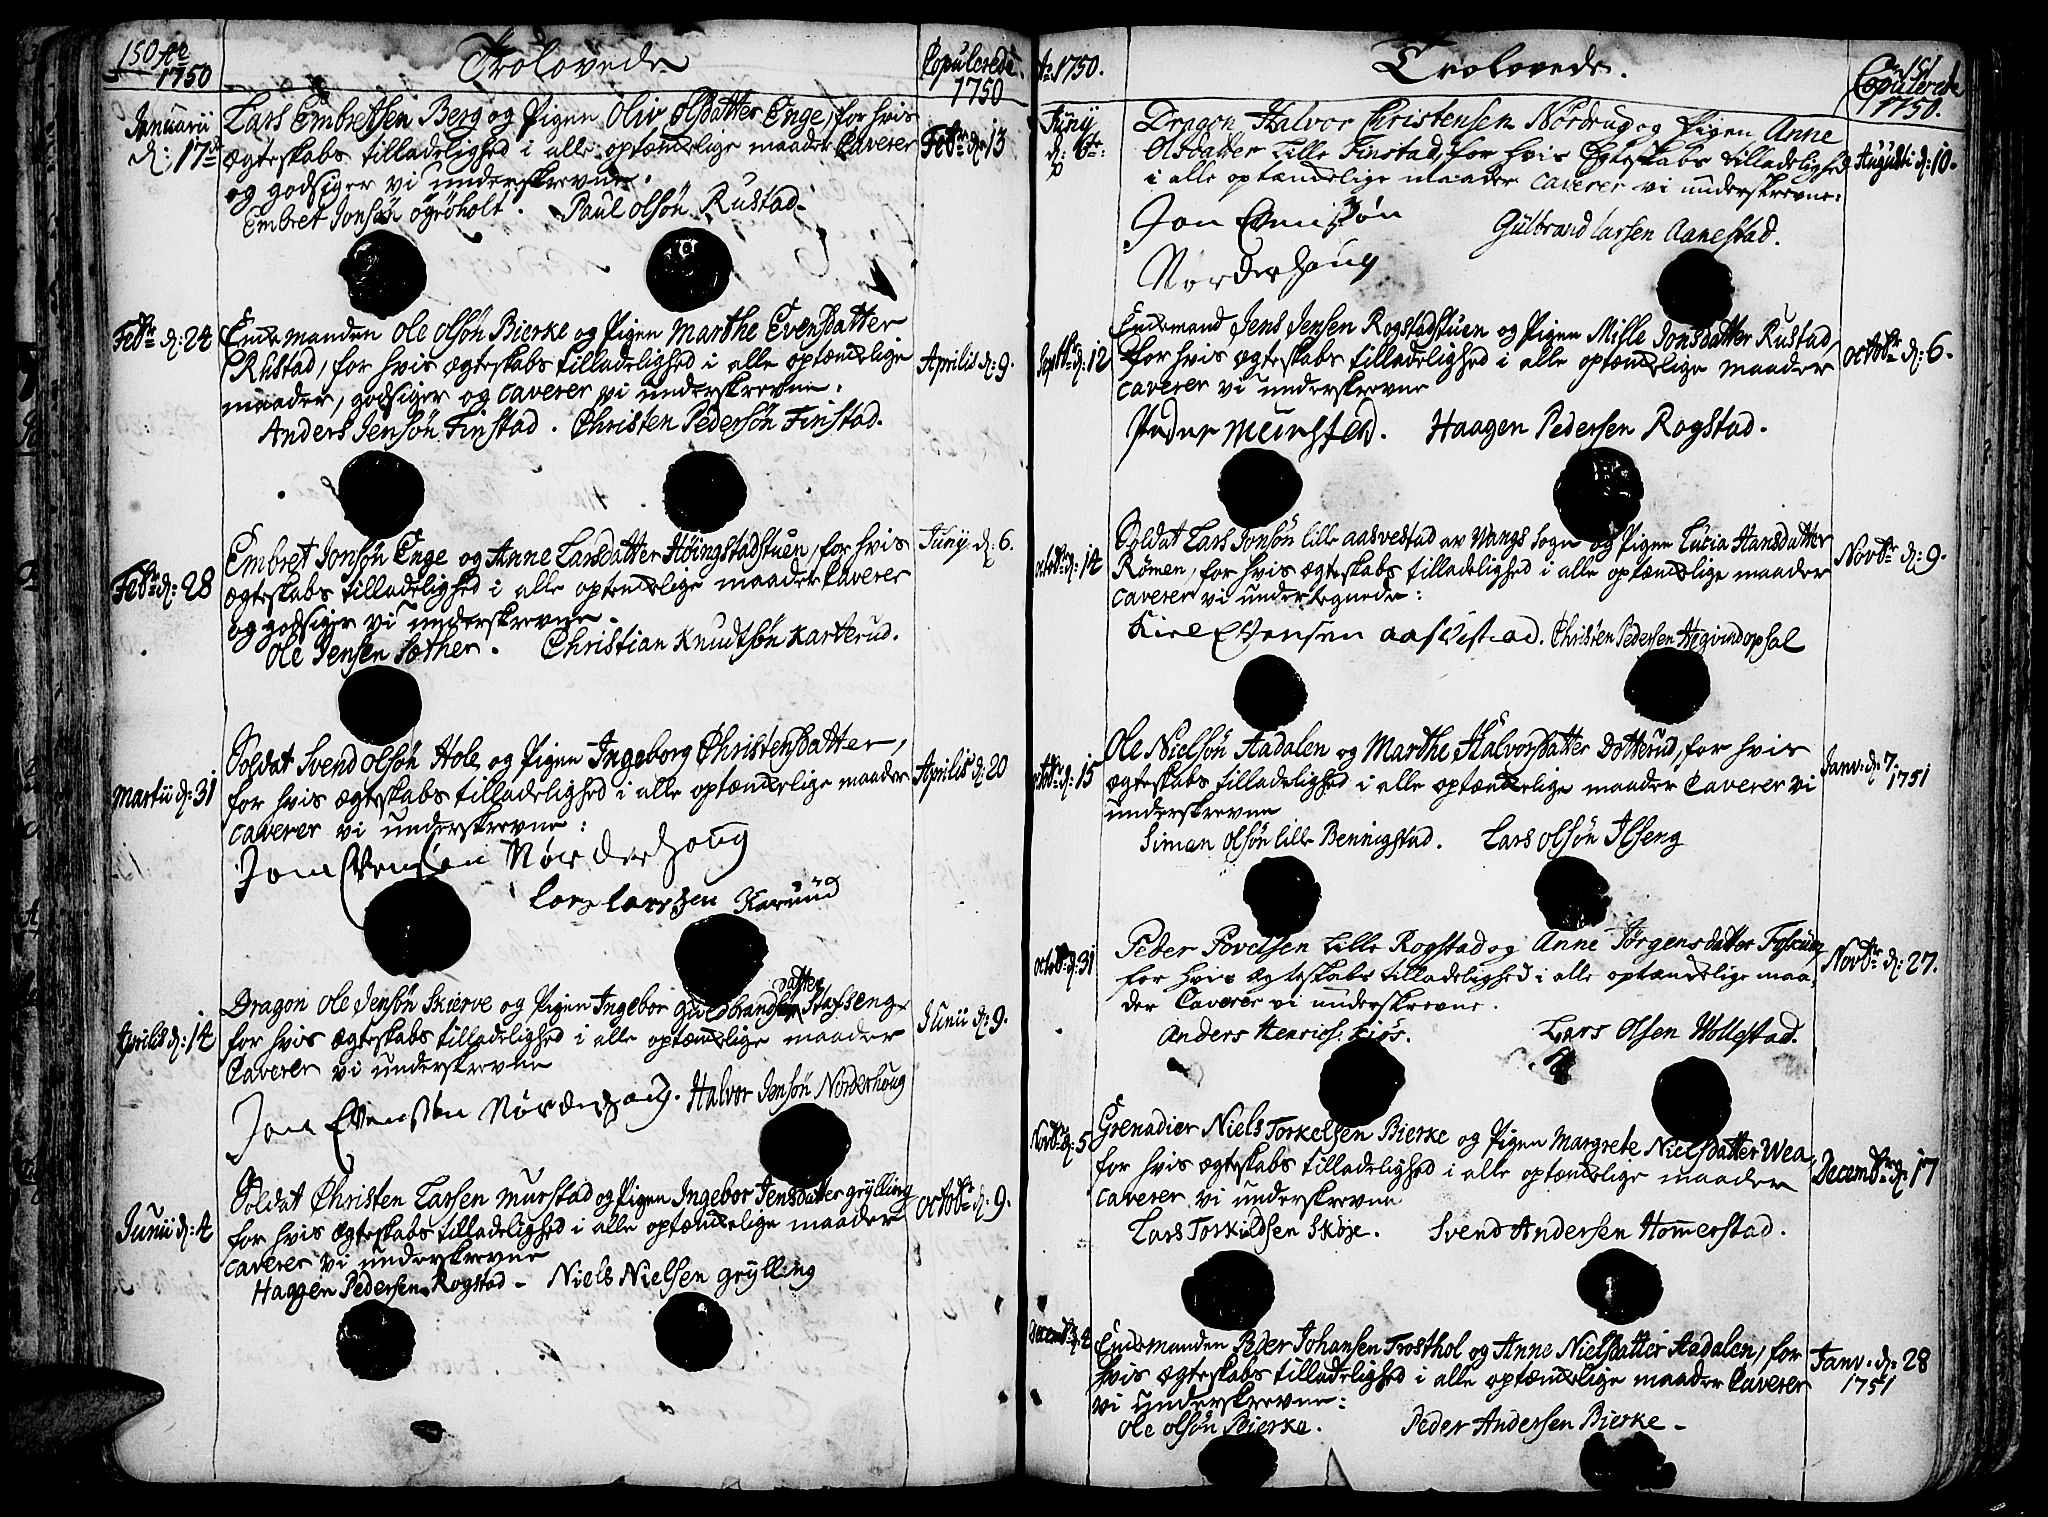 150 Aº 1750
Trolovede
Copulerede 1750
Januarii d: 17de
Lars Embretsen Berg og Pigen Oliv Olsdatter Enge, for hvis
ægteskabs tilladelighed i alle optænckelige maader Caverer
og godsiger vi underskrevne.
Embret Jonsøn Ogrøholt. Paul Olsøn Rustad.
Febr: d: 13
Febr: d: 24
Enckemanden Ole Olsøn Bierke og Pigen Marthe Evensdatter
Rustad, for hvis ægteskabs tilladelighed i alle optænckelige
maader, godsiger og caverer vi underskrevne.
Anders Jensøn Finstad. Christen Pedersøn Finstad.
Aprilis d: 9.
Febr: d: 28
Embret Jonsøn Enge og Anne Larsdatter Høingstadstuen, for hvis
ægteskabs tilladelighed i alle optænckelige maader Caverer
og godsiger vi underskrevne.
Ole Jensen Sæther. Christian Knudtsøn Karterud.
Juny d: 6.
Martii d: 31
Soldat Svend Olsøn Hole og Pigen Ingeborg Christensdatter,
for hvis ægteskabs tilladelighed i alle optænckelige maader
caverer vi underskrevne:
Jon Evensøn Nørderhoug
Lars Larssen Karuud
Aprilis d: 20
Aprilis d: 14
Dragon Ole Jensøn Skierve og Pigen Ingebor Guldbrandsdatter Stafseng,
for hvis ægteskabs tilladelighed i alle optænckelige maader
Caverer vi underskrevne
Jon Evensøn Nørderhoug. Halvor Jensøn Norderhoug
Junii d: 9.
Junii d: 4
Soldat Christen Larsen Murstad og Pigen Ingebor Jensdatter Grylling
for hvis ægteskabs tilladelighed i alle optænckelige maader
caverer vi underskrevne
Haagen Pedersen Rogstad. Niels Nielsen Grylling
Octobr: d: 9.
Aº 1750.
Trolovede.
151
Copulerede 1750.
Juny d: 6te:
Dragon Halvor Christensen Nordrug og Pigen Anne
Olsdatter Lille Finstad, for hvis Ægteskabs tilladelighed
i alle optænckelige maader caverer vi underskrevne:
Jon Evensøn Gulbrand Larsen Aanestad.
Nørderhoug
Augusti d: 10.
Septbr: d: 12
Enckemand Jens Jensen Rogstadstuen og Pigen Mille Jonsdatter Rustad,
for hvis ægteskabs tilladelighed i alle optænckelige maader
caverer vi underskrevne
Peder Murstad. Haagen Pedersen Rogstad.
Octobr: d: 6.
Octobr: d: 14
Soldat Lars Jonsøn lille Aasvedstad av Vangs Sogn og Pigen Lucia Hansdatter
Rømen, for hvis ægteskabs tilladelighed i alle optænckelige maader
caverer vi undertegnede:
Evensen Aasvistad. Christen Pedersen Hegvindopsal
Novbr: d: 9.
Octobr: d: 15
Ole Nielsøn Aadalen og Marthe Halvorsdatter Dotterud, for hvis
ægteskabs tilladelighed i alle optænckelige maader Caverer vi
underskrevne
Simen Olsøn lille Benningstad. Lars Olsøn Ilseng
Janv: d: 7. 1751
Octob: d: 31
Peder Povelsen Lille Rogstad og Anne Jørgensdatter
for hvis Ægteskabs tilladelighed i alle optænckelige maa-
der Caverer vi underskrevne.
Anders Henrichs: Kiøs. Lars Olsen Wollestad.
Novbr: d: 27.
Novbr: d: 5
Grenadier Niels Torkelsen Bierke og Pigen Margrete Nielsdatter Wea,
for hvis ægteskabs tilladelighed i alle optænckelige maader
caverer vi underskrevne
Lars Torkildsen Skøje. Svend Andersen Hommerstad.
Decembr: d: 17
Decemb: d: 4
Enckemanden Peder Johansen Trosthol og Anne Nielsdatter Aadalen, for
hvis ægteskabs tilladelighed i alle optænckelige maader Caverer
vi underskrevne:
Ole Olsøn Bierke. Peder Andersen Bierke.
Janv: d: 28 1751